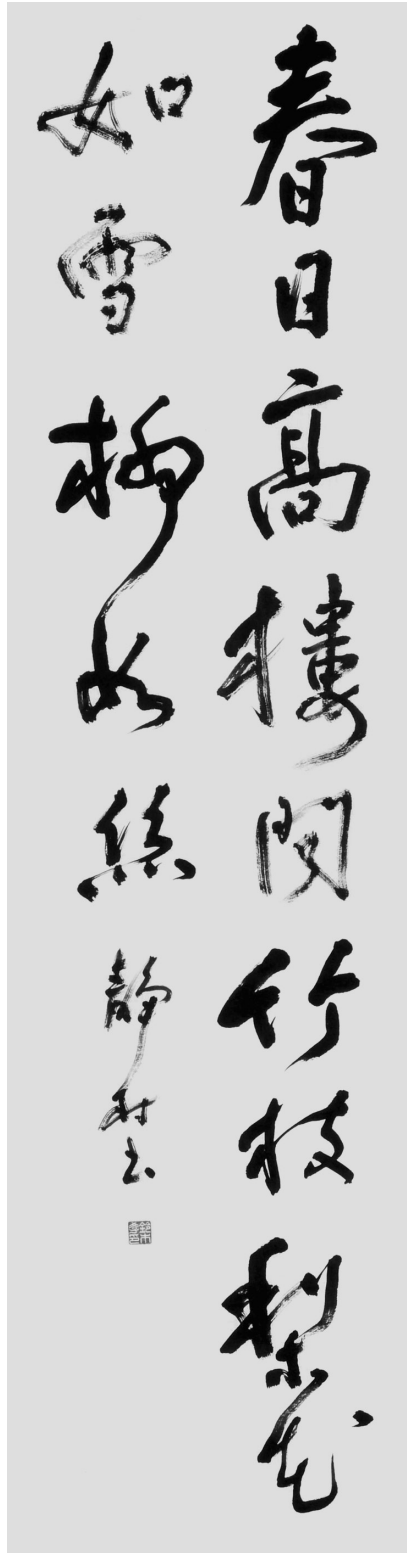 春日高樓聞竹枝梨花
如雪柳如絲 靜村書